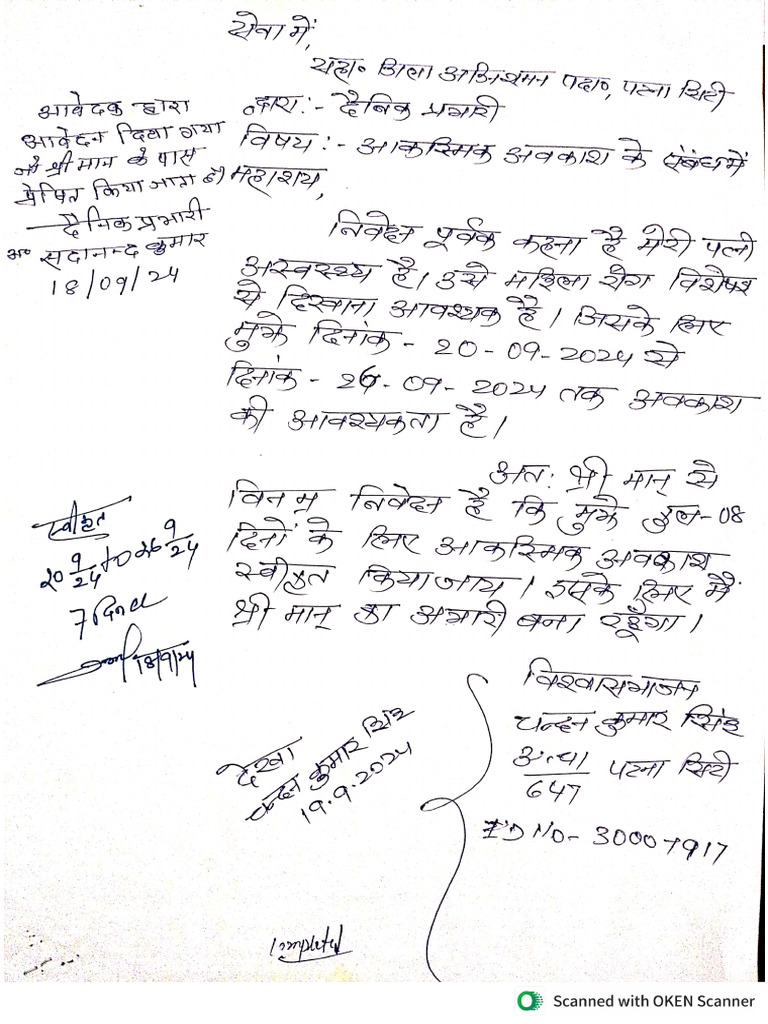 सेवा में,
सहा॰ जिला अग्निशमन पदा॰, पटना सिटी
द्वारा:- दैनिक प्रभारी
विषय:- आकस्मिक अवकाश के संबंध में
महाशय,
निवेदन पूर्वक कहना है मेरी पत्नी
अस्वस्थ्य है। उसे महिला रोग विशेषज्ञ
से दिखाना आवश्यक है। जिसके लिए
मुझे दिनांक - 20-09-2024 से
दिनांक - 26-09-2024 तक अवकाश
की आवश्यकता है।
अत: श्री मान् से
विनम्र निवेदन है कि मुझे कुल-08
दिनों के लिए आकस्मिक अवकाश
स्वीकृत किया जाय। इसके लिए मैं
श्री मान् का अभारी बना रहूँगा।
विश्वासभाजन
चन्दन कुमार सिंह
647 पटना सिटी
ID NO- 30007917
आवेदक द्वारा
आवेदन दिया गया
जो श्री मान के पास
प्रेषित किया जाता है।
दैनिक प्रभारी
अ॰ सदानन्द कुमार
18/09/24
स्वीकृत
20 9/24 to 26 9/24
7 दिन
18/9/24
देखा
चन्दन कुमार सिंह
19.9.2024
Completed
Scanned with OKEN Scanner